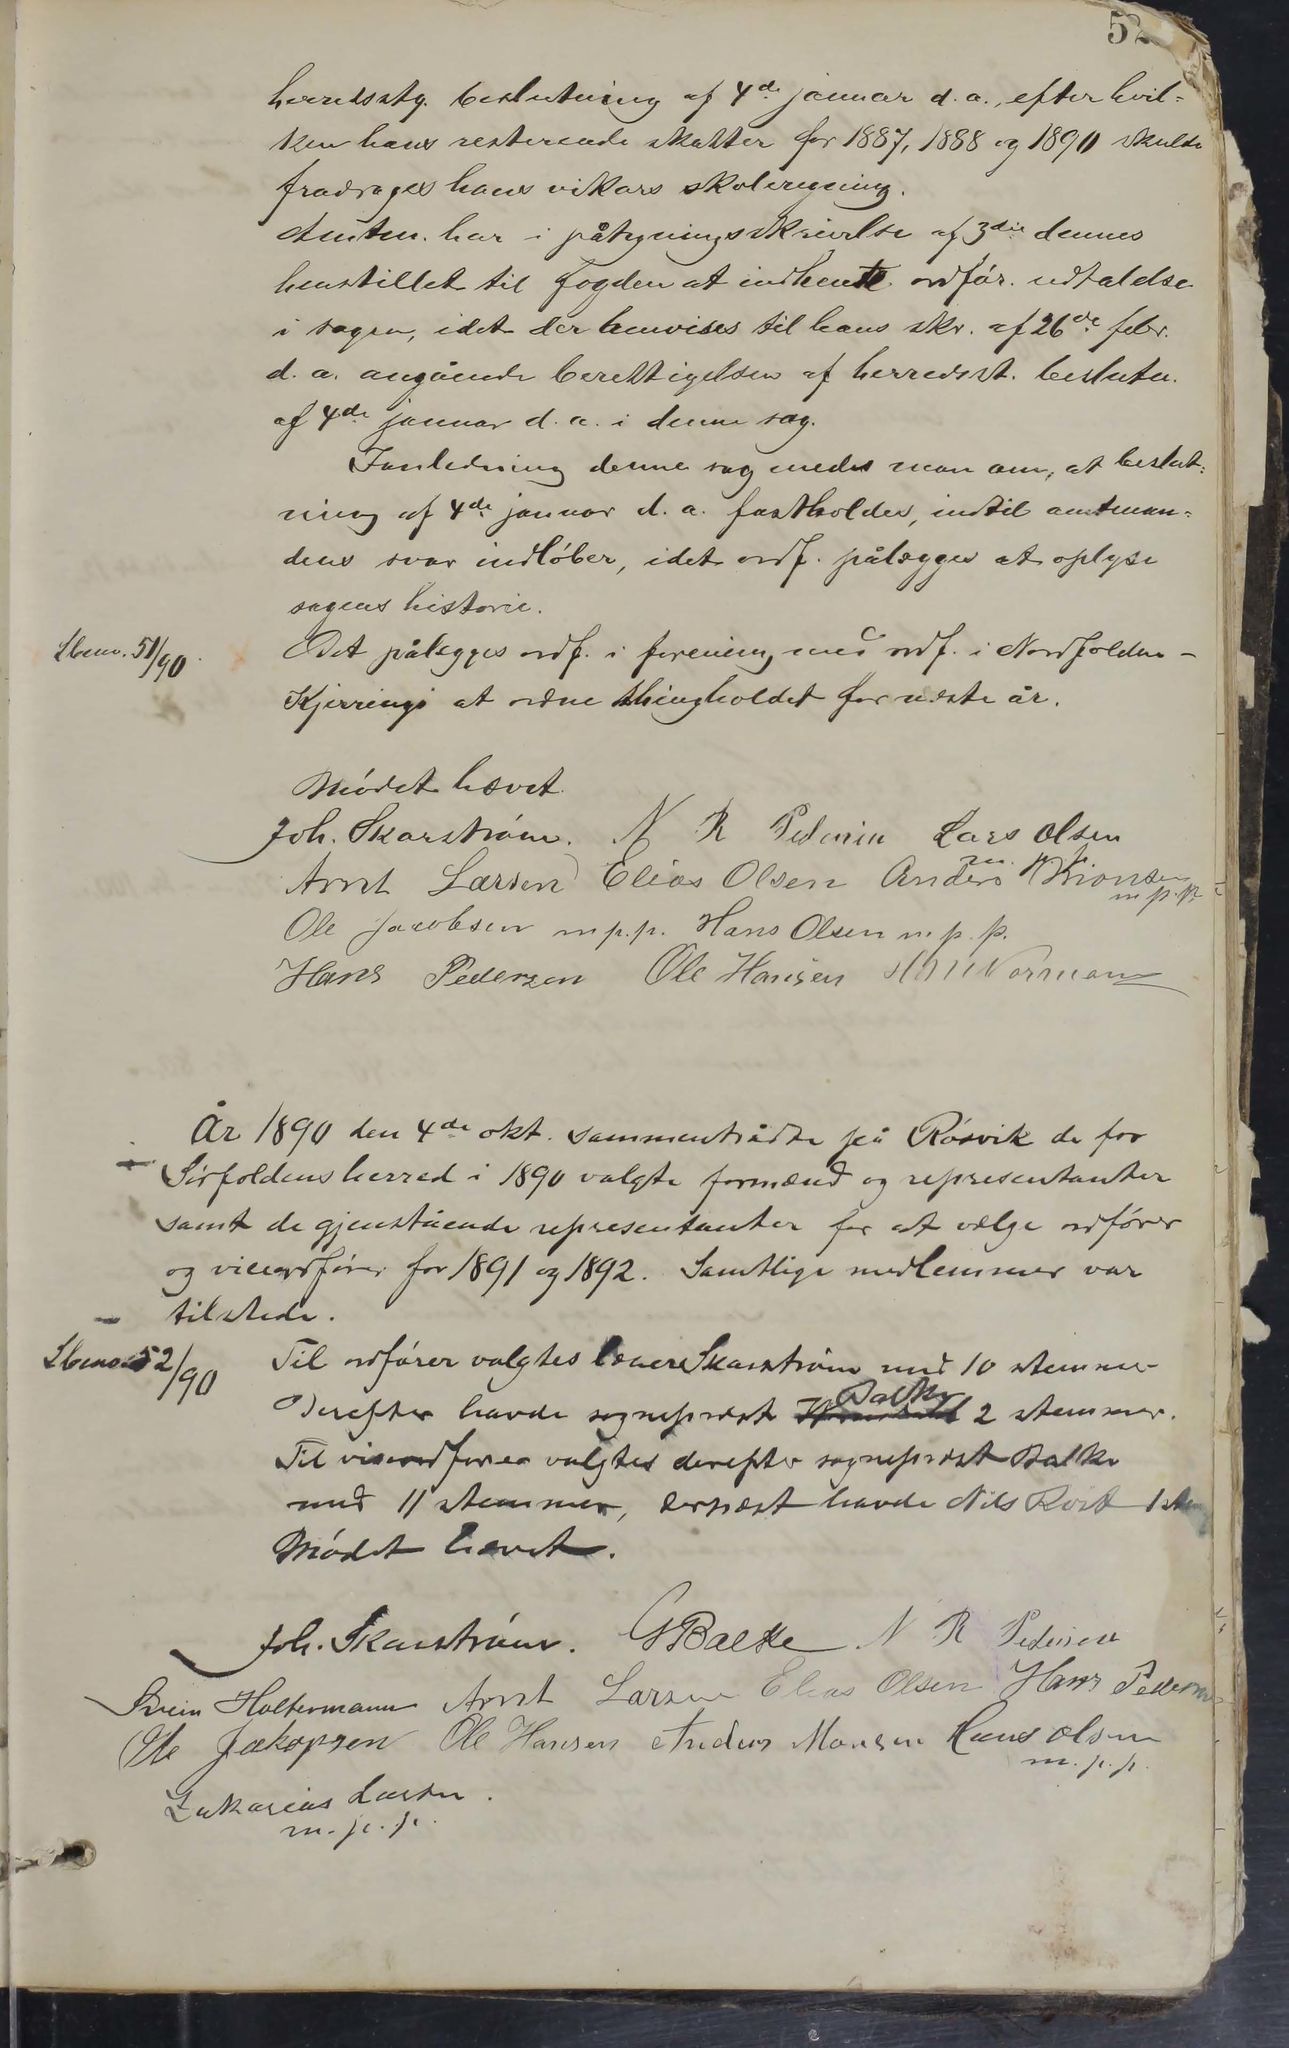 52
herredsstg. beslutning af 4de januar d. a., efter hvil-
ken hans resterende skatter for 1887, 1888 og 1890 skulde
fradrages hans vikars skoleregning.
Amtm. har i påtegningsskrivelse af 3die dennes
henstillet til Fogden at indhente ordfør. udtalelse
i sagen, idet der henvises til hans skr. af 26de febr.
d. a. angående berettigelsen af herredsst. beslutn.
af 4de januar d. a. i denne sag.
I anledning denne sag enedes man om, at beslut-
ning af 4de januar d. a. fastholdes, indtil amtman-
dens svar indløber, idet ordf. pålægges at oplyse
sagens historie.
51/90 Det pålægges ordf. i forening med ordf. i Nordfolden-
Kjerringø at ordne thingholdet for næste år.
Mødet hævet.
Joh. Skarstrøm. N R Pedersen Lars Olsen
Arnt Larsen Elias Olsen Anders m.p.p.
Ole Jacobsen m.p.p. Hans Olsen m.p.p.
Hans Pedersen Ole Hansen Normann
År 1890 den 4de okt. sammentrådte på Røsvik de for
Sørfoldens herred i 1890 valgte formænd og representanter
samt de gjenstående representanter for at vælge ordfører
og viceordfører for 1891 og 1892. Samtlige medlemmer var
tilstede.
52/90 Til ordfører valgtes lærer Skarstrøm med 10 stemmer
Derefter havde sogneprest Balke 2 stemmer.
Til viceordfører valgtes derefter sogneprest Balke
med 11 stemmer, dernæst havde Nils Kvit 1 stem
Mødet hævet.
Joh. Skarstrøm. G Balke N R Pedersen
Svein Holtermann Arnt Larsen Elias Olsen Hans Pedersen
Ole Jakopsen Ole Hansen Anders Monsen Hans Olsen
m.p.p.
Zakarias Larsen.
m.p.p.